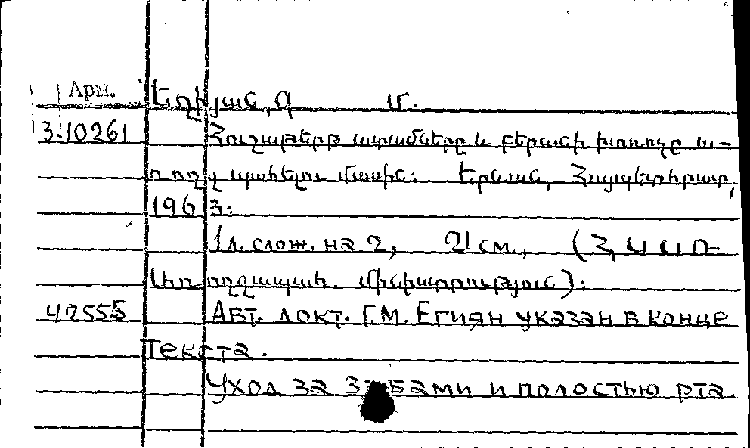 Арм.
Եղիյան, Գ. Մ.
3-10261 Հուշաթերթ ատամները և բերանի խոռոչը ա-
ռողջ պահելու մասին: Երևան, Հայպետհրատ,
1963:
1л. слож. на 2, 21см., (ՀՍՍՌ
առողջապահ. մինիստրություն):
42555 Авт. докт. Г.М. Егиян указан в конце
текста.
Уход за зубами и полостью рта